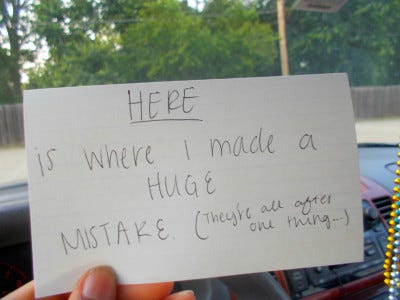 HERE
is where I made a
HUGE
MISTAKE. (They're all after
one thing...)